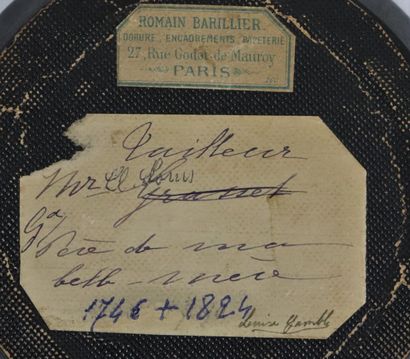 ROMAIN BARILLIER
DORURE, ENCADREMENTS, PAPETERIE
27, Rue Godot de Mauroy
PARIS
Tailleur
Mr Louis
Gd
Père de ma
belle-mère
1746 + 1824
Denise Gamble